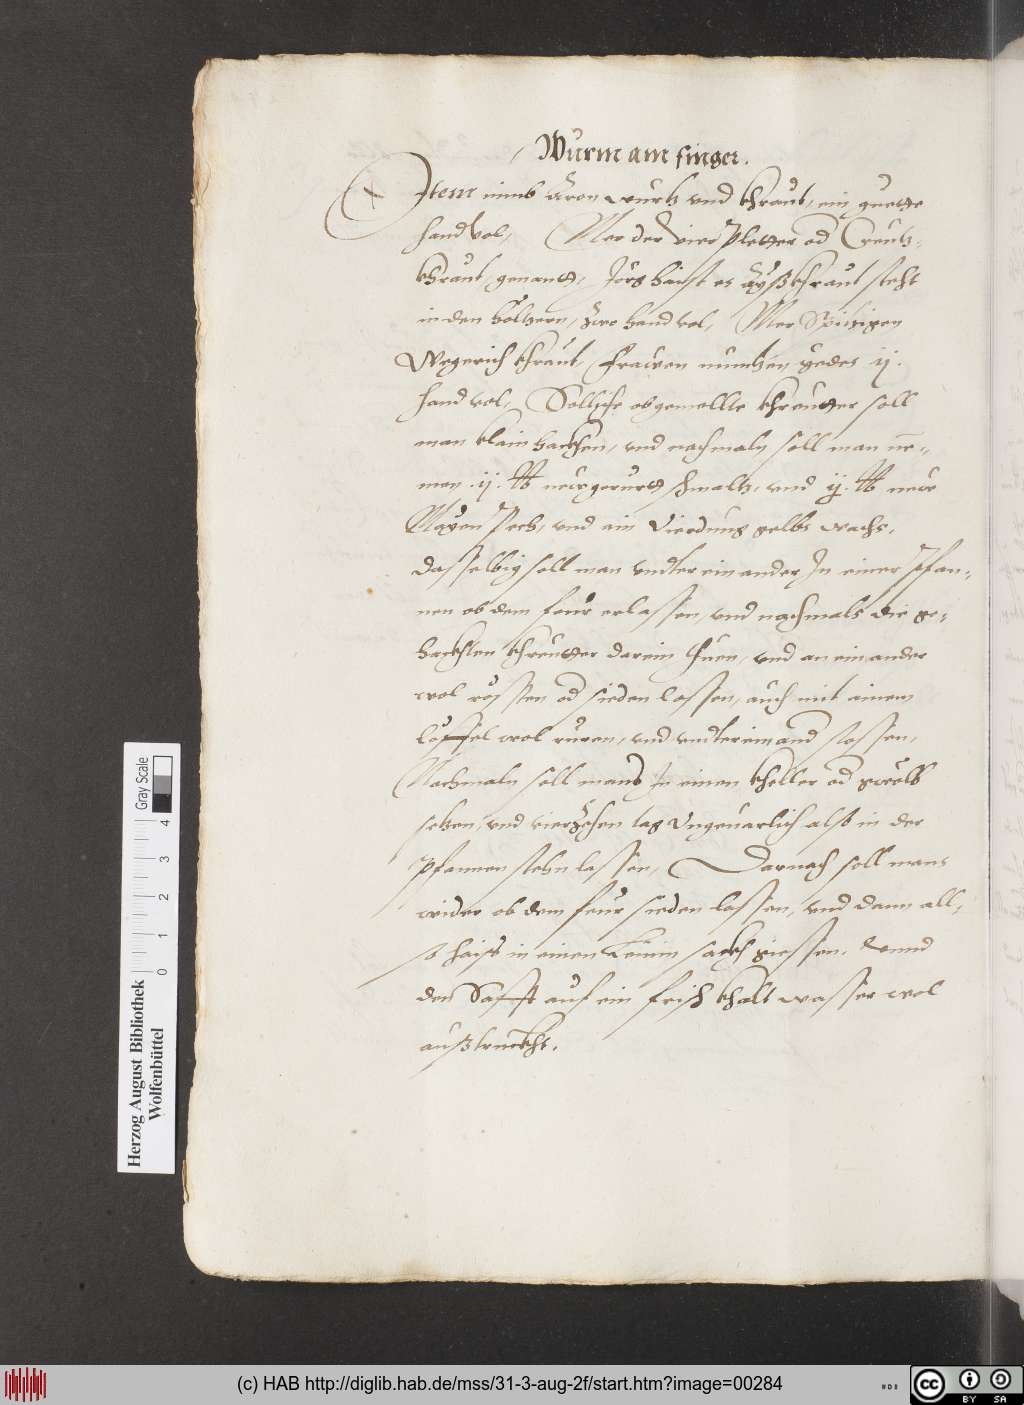 Wurm am finger.
Item nimb Aron wurtz vnd khraut, ein guette
handvol, Mer der vier Pletter od Creutz-
khraut genantt, Jörg haist es Äÿßkhraut steht
in den höltzern, zwo hand vol, Mer Spitzigen
Wegerich khraut, Frawen müntzen yedes ij.
hand vol, Sollche obgemellte khreutter soll
man klain hackhen, vnd nachmaln soll man ne-
men .ij. lb newgerürtt schmaltz, vnd ij. lb new
Mayen Pech, vnd ain Vierdung gelbs wachs,
dasselbig soll man vndter ein ander In einer Pfan-
nen ob dem feur erlassen, vnd nachmals die ge-
hackhten khreutter darein thuen, vnd an einander
wol rössten od sieden lassen, auch mit ainem
löffel wol rüren, vnd vndtereinand stossen,
Nachmaln soll mans In einen kheller od gwölb
setzen, vnd vierzehen tag Ungeuarlich alß in der
Pfannen stehn lassen, Darnach soll mans
wider ob dem feur sieden lassen, vnd dann all-
so haiß in einen Leinin sackh giessen, vnnd
den Safft auf ein frisch khalt wasser wol
außtruckht.
Herzog August Bibliothek
Wolfenbüttel
Gray Scale
0 1 2 3 4
(c) HAB http://diglib.hab.de/mss/31-3-aug-2f/start.htm?image=00284
cc BY SA